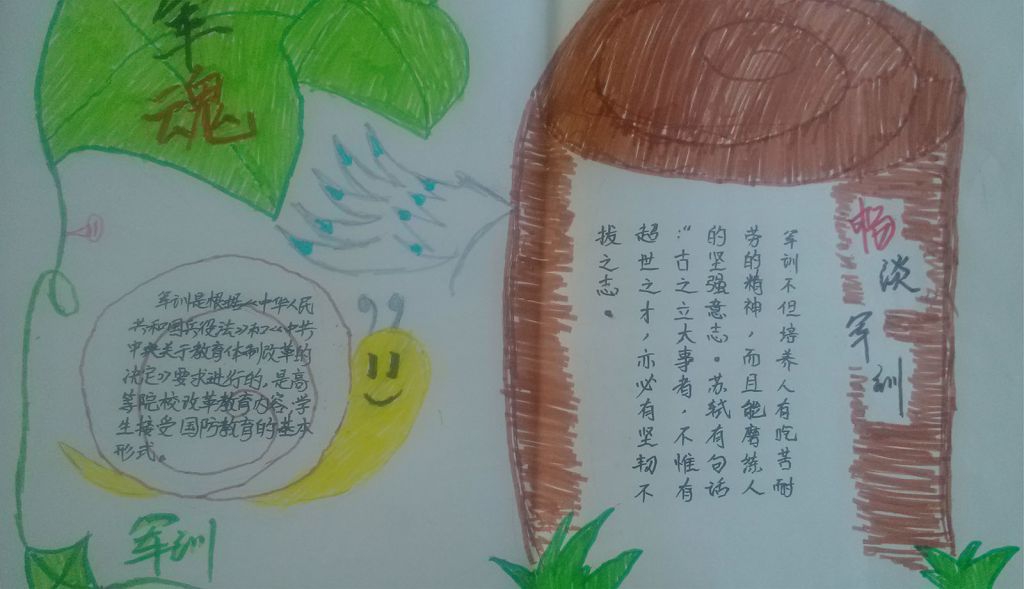 军
魂
军训是根据《中华人民
共和国兵役法》和《中共
中央关于教育体制改革的
决定》要求进行的,是高
等院校改革教育内容,学
生接受国防教育的基本
形式。
军训
畅淡军训
军训不但培养人有吃苦耐
劳的精神,而且能磨练人
的坚强意志。苏轼有句话
:“古之立大事者,不惟有
超世之才,亦必有坚韧不
拔之志。